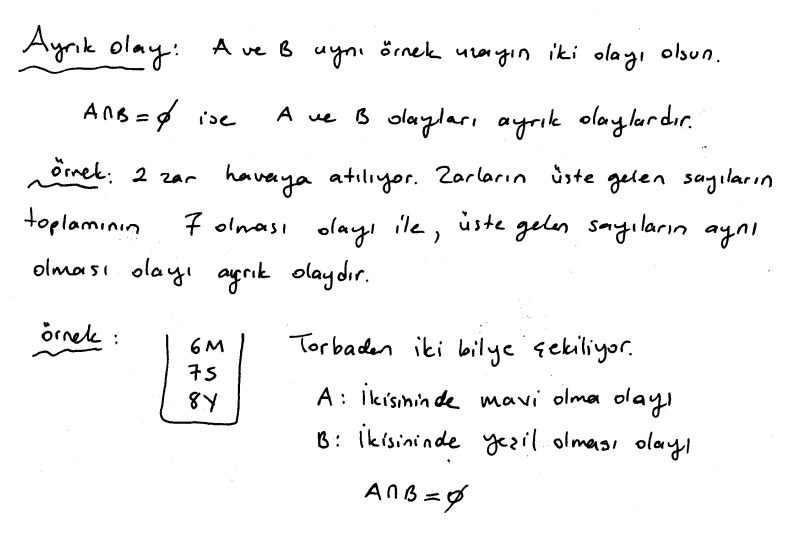 Ayrık olay: A ve B aynı örnek uzayın iki olayı olsun.
A∩B=∅ ise A ve B olayları ayrık olaylardır.
örnek: 2 zar havaya atılıyor. Zarların üste gelen sayıların
toplamının 7 olması olayı ile, üste gelen sayıların aynı
olması olayı ayrık olaydır.
örnek:
6M
7S
8Y
Torbadan iki bilye çekiliyor.
A: İkisininde mavi olma olayı
B: İkisininde yeşil olması olayı
A∩B=∅